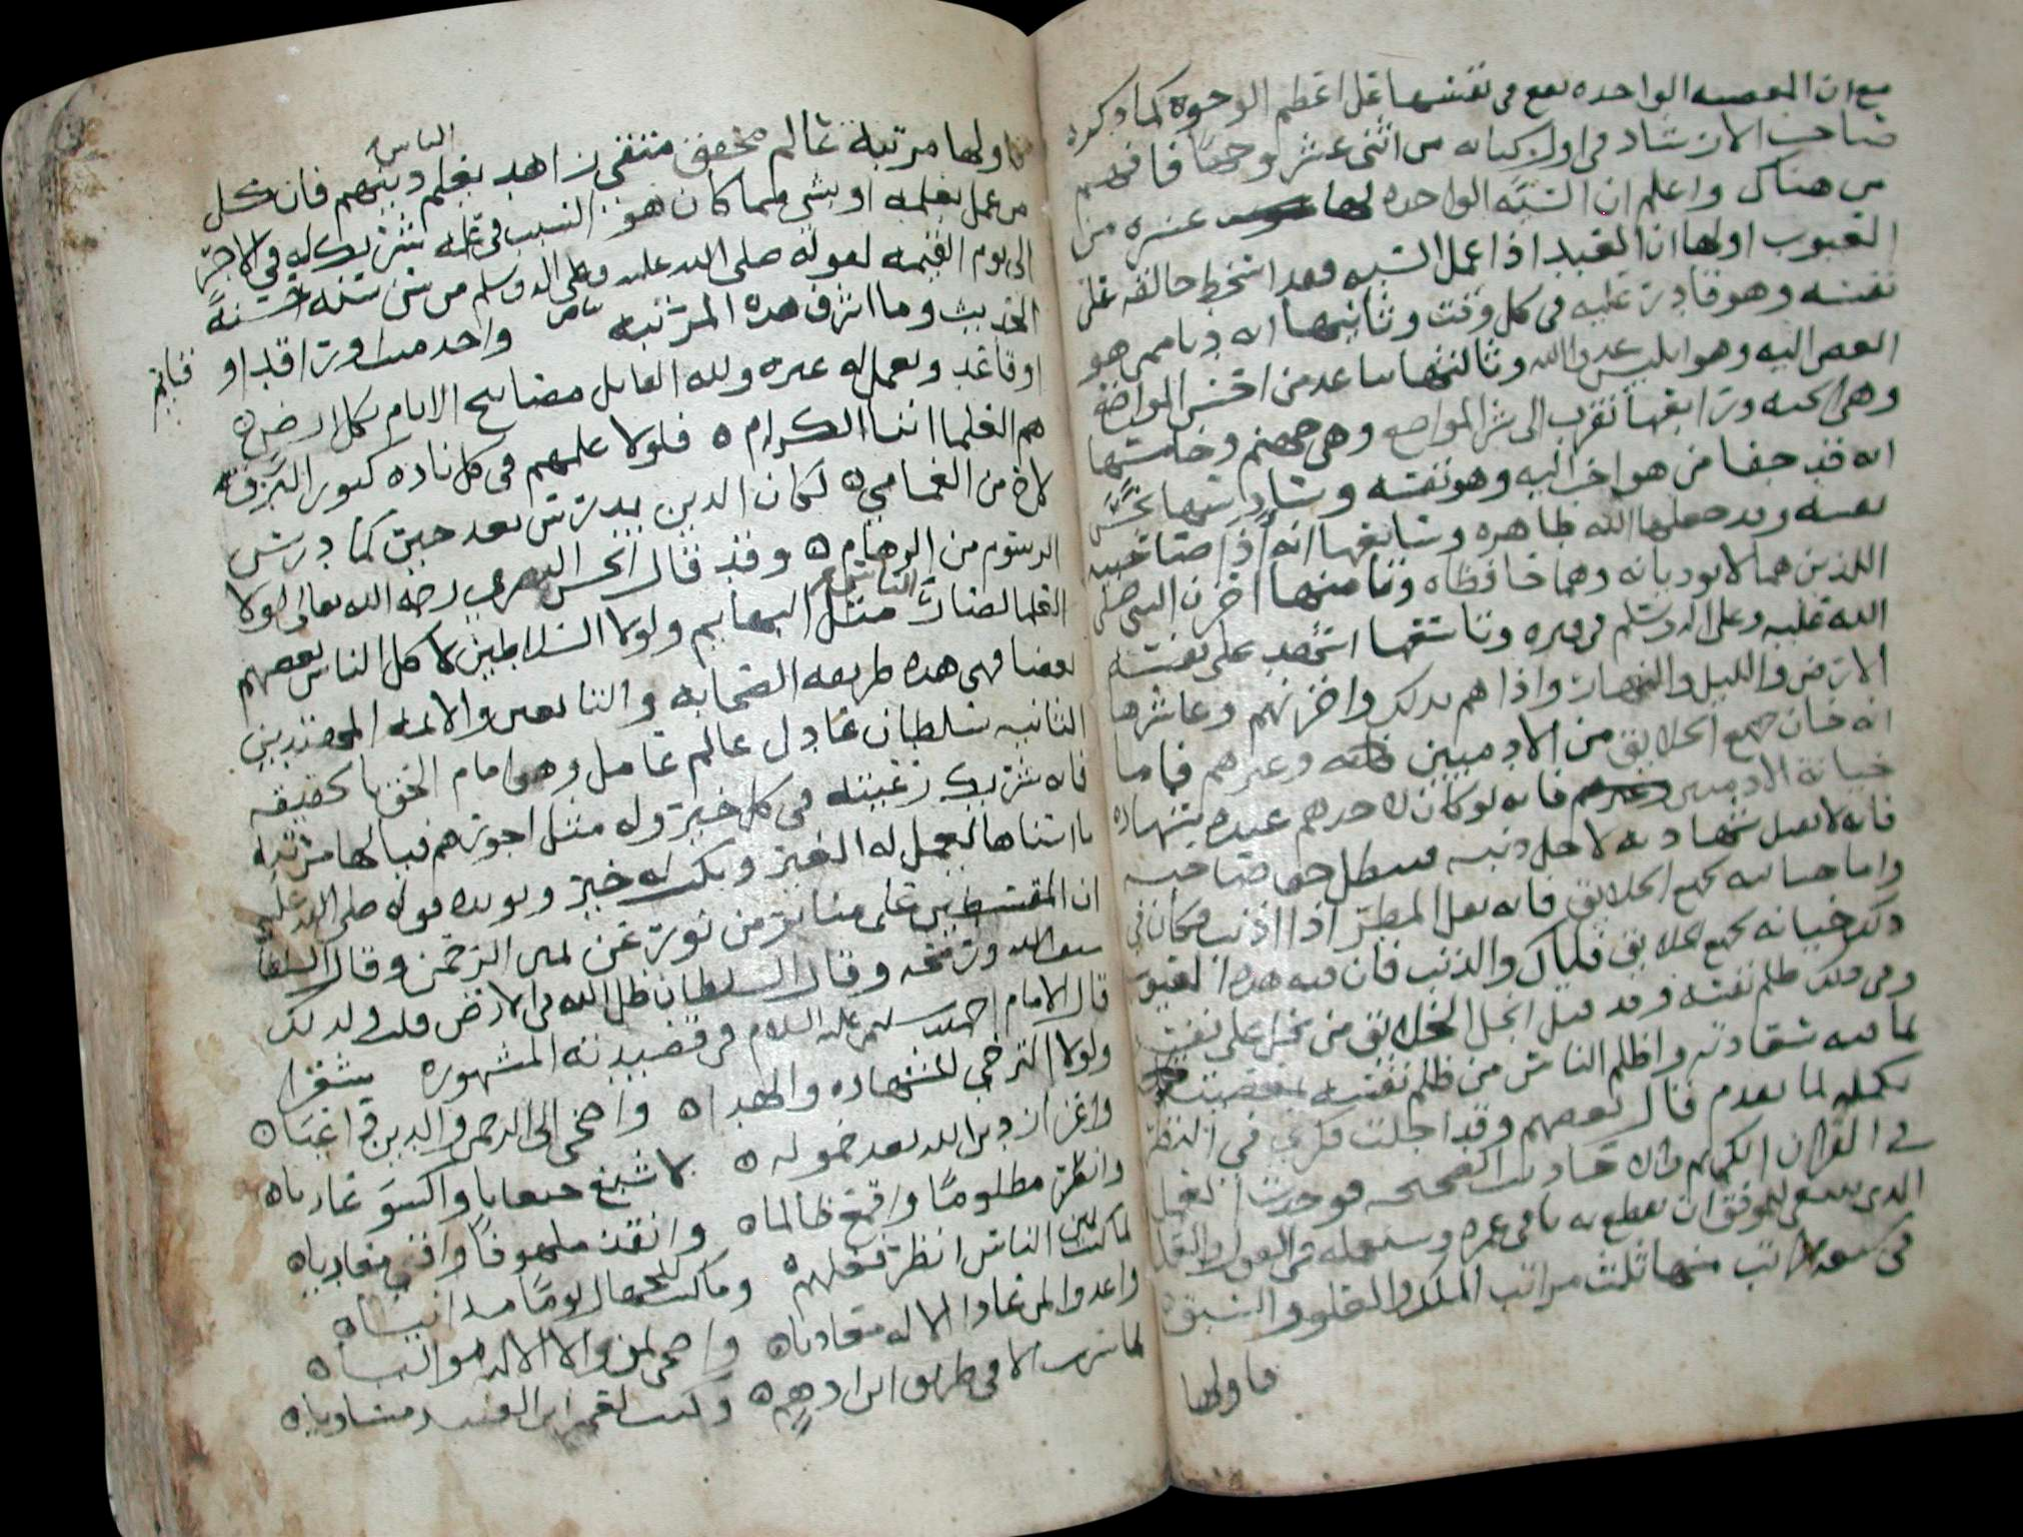 مع ان المعصيه الواحده تقع في نفسها على اعظم الوجوه كما ذكره
صاحب الارشاد في اول كتابه من اثنى عشر وجها فافهم
من هناك واعلم ان السيه الواحده لها عشره من
العيوب اولها ان العبد اذا عمل السيه فقد اسخط خالقه على
نفسه وهو قادر عليه في كل وقت وثانيها انه هو
اليه وهو ابليس عدو الله وثالثها تباعد من احسن المواضع
وهي الجنه ورابعها تقرب الى شر المواضع وهي جهنم وخامسها
انه قد جفا من هو احب اليه وهو نفسه وسادسها نجس
نفسه وقد جعلها الله طاهره وسابعها انه اذا صاحبيه
اللذين هما لا يوذيانه وهما حافظاه وثامنها احزن النبي صلى
الله عليه وعلى اله وسلم في قبره وتاسعها اشهد على نفسه
الارض والليل والنهار واذاهم بذلك واحزنهم وعاشرها
انه خان جميع الخلايق من الادميين وغيرهم فاما
خيانة الادميين فانه لو كان لاحدهم عنده شهاده
فانه لا تقبل شهادته لاجل ذنبه فيبطل حق صاحبه
واما خيانته لجميع الخلايق فانه يقل المطر اذا اذنب فكان في
ذلك خيانه لجميع الخلايق فاياك والذنب فان فيه هذه العيوب
وفي ذلك ظلم نفسه وقد قيل ابخل الخلايق من بخل على نفسه
بما فيه سعادته واظلم الناس من ظلم نفسه بمعصيته
تكمله لما تقدم قال بعضهم وقد اجلت فكري في النظر
في القران الكريم والاحاديث الصحيحه فوجدت العمل
الذي ينبغي للموفق ان يقطع به باقي عمره ويستعمله في القول والفعل
في منها ثلث مراتب الملك والعلو والسبق
فاولها
فاولها مرتبة عالم محقق متقي زاهد يعلم الناس دينهم فان كل
من عمل بعلمه او بشي مما كان هو السبب في عمله شريك له في الاجر
الى يوم القيمه لقوله صلى الله عليه وعلى اله وسلم من سن سنه حسنة
الحديث وما اشرف هذه المرتبه واحد ميت او راقد او قايم
او قاعد ويعمل له غيره ولله القايل مصابيح الانام بكل ارض ه
هم العلما ابنا الكرام ه فلولا علمهم في كل ناد ه كنور البرق
لاح من الغمام ه لكان الدين يدرس بعد حين كما درس
الرسوم من الرهام ه وقد قال الحسن البصري رحمه الله تعالى لولا
العلما لصار الناس مثل البهايم ولولا السلاطين لاكل الناس بعضهم
بعضا فهي هذه طريقه الصحابه والتابعين والائمه المهتدين
الثانيه سلطان عادل عالم عامل وهو امام الحق بالحقيقه
فانه شريك رعيته في كل خير وله مثل اجورهم فيا لها مرتبه
ما اسناها يعمل له الغير ويكتب له خير ويويده قوله صلى الله عليه
ان المقسطين على منابر من نور عن يمين الرحمن وقال السلطان
ورمحه وقال السلطان ظل الله في الارض قلت ولذلك
قال الامام احمد عليه السلام في قصيدته المشهوره شعرا
ولولا الترجي للشهاده والهدا ه واضحى الى الرحمن والدين داعيا ه
واعزاز دين الله بعد خموله ه لاشبع جيعانا واكسو عاريا ه
وانظر مظلوما واقمع ظالما ه وانقذ ملهوفا وافني معاديا ه
لما كنت بين الناس انظر فعلهم ه وما كنت للجهال يوما مدانيا ه
واعدوا لمن عادا الاله معاديا ه واضحى لمن والا الاله مواليا ه
لما سرت الا في طريق ابن ادهم ه وكنت لعمر ابن العبيد مساويا ه